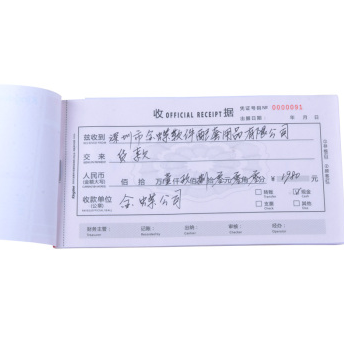 收 OFFICIAL RECEIPT 据
凭证号码№ 0000091
出票日期: 年 月 日
兹收到 深圳市金蝶软件配套用品有限公司
交来 货款
人民币 佰 拾 万壹仟玖佰捌拾零元零角零分 ¥ 1980
(金额大写) 转账 现金
收款单位 金蝶公司 支票 其他
(公章)
财务主管: 记账: 出纳: 审核: 经办: